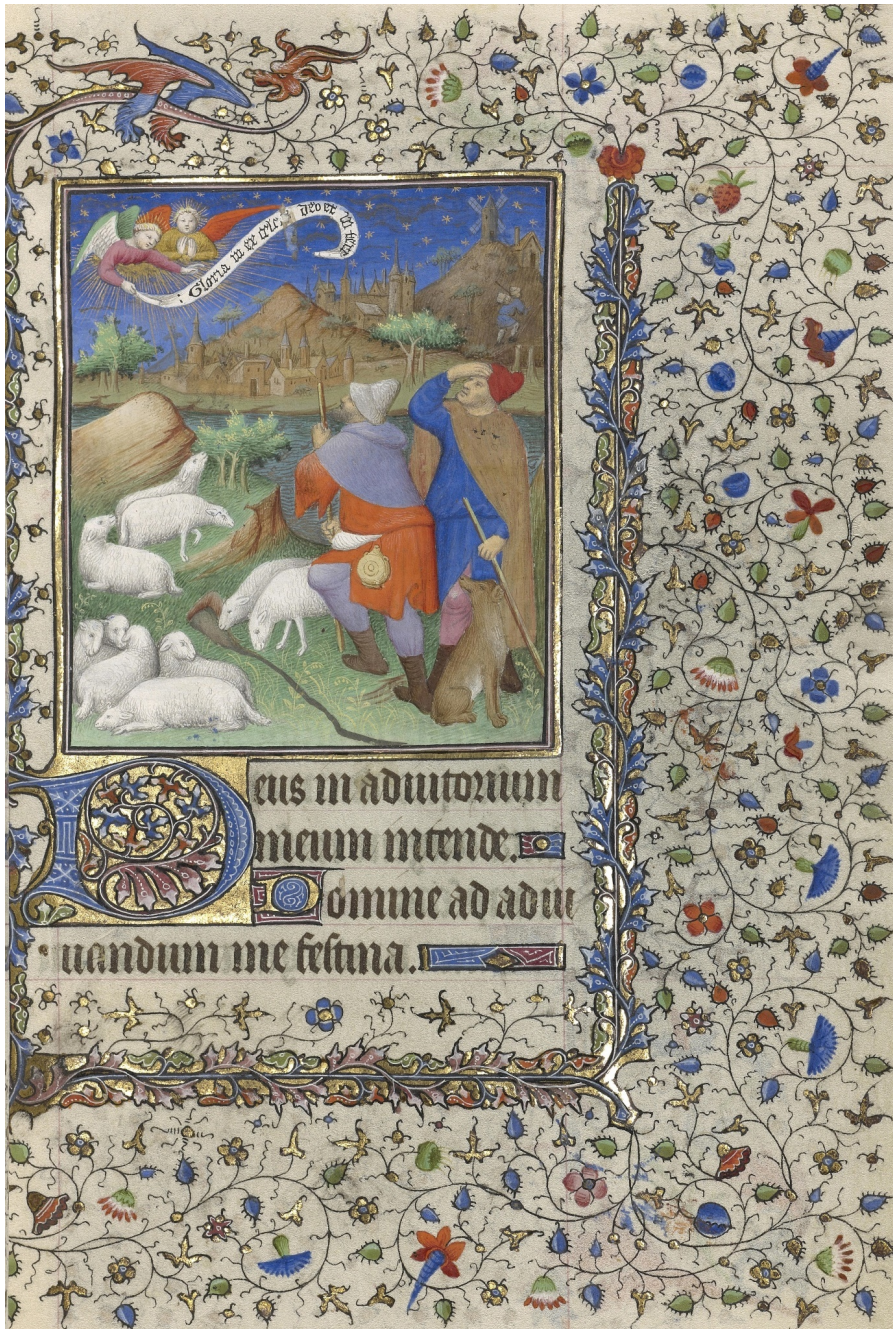 Gloria in ex celcis deo et in terra
Deus in adiutorium
meum intende.
Domine ad adiu
uandum me festina.